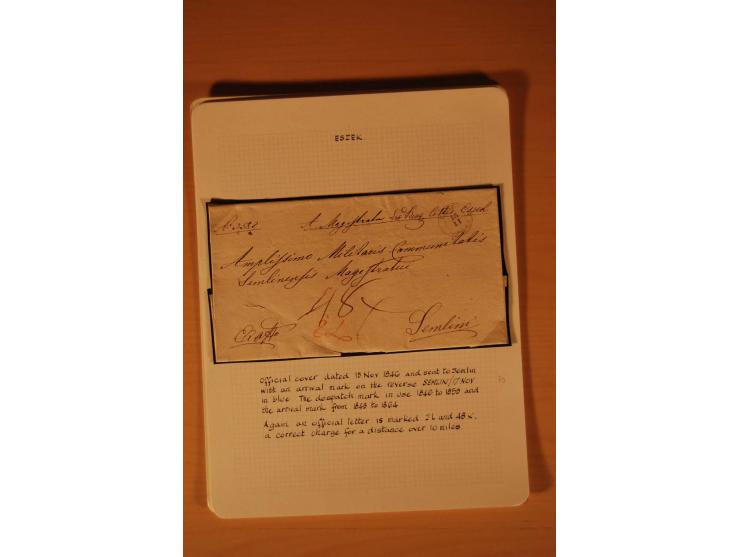 ESZEK
A Magistratu
Amplissimo Militaris Communitatis
Semlinensis Magistratui
48x
2L
Semlini
Official cover dated 15 Nov 1846 and sent to Semlin
with an arrival mark on the reverse SEMLIN/17 NOV
in blue. The despatch mark in use 1846 to 1859 and
the arrival mark from 1843 to 1864.
Again an official letter is marked 2L and 48x.
a correct charge for a distance over 10 miles.